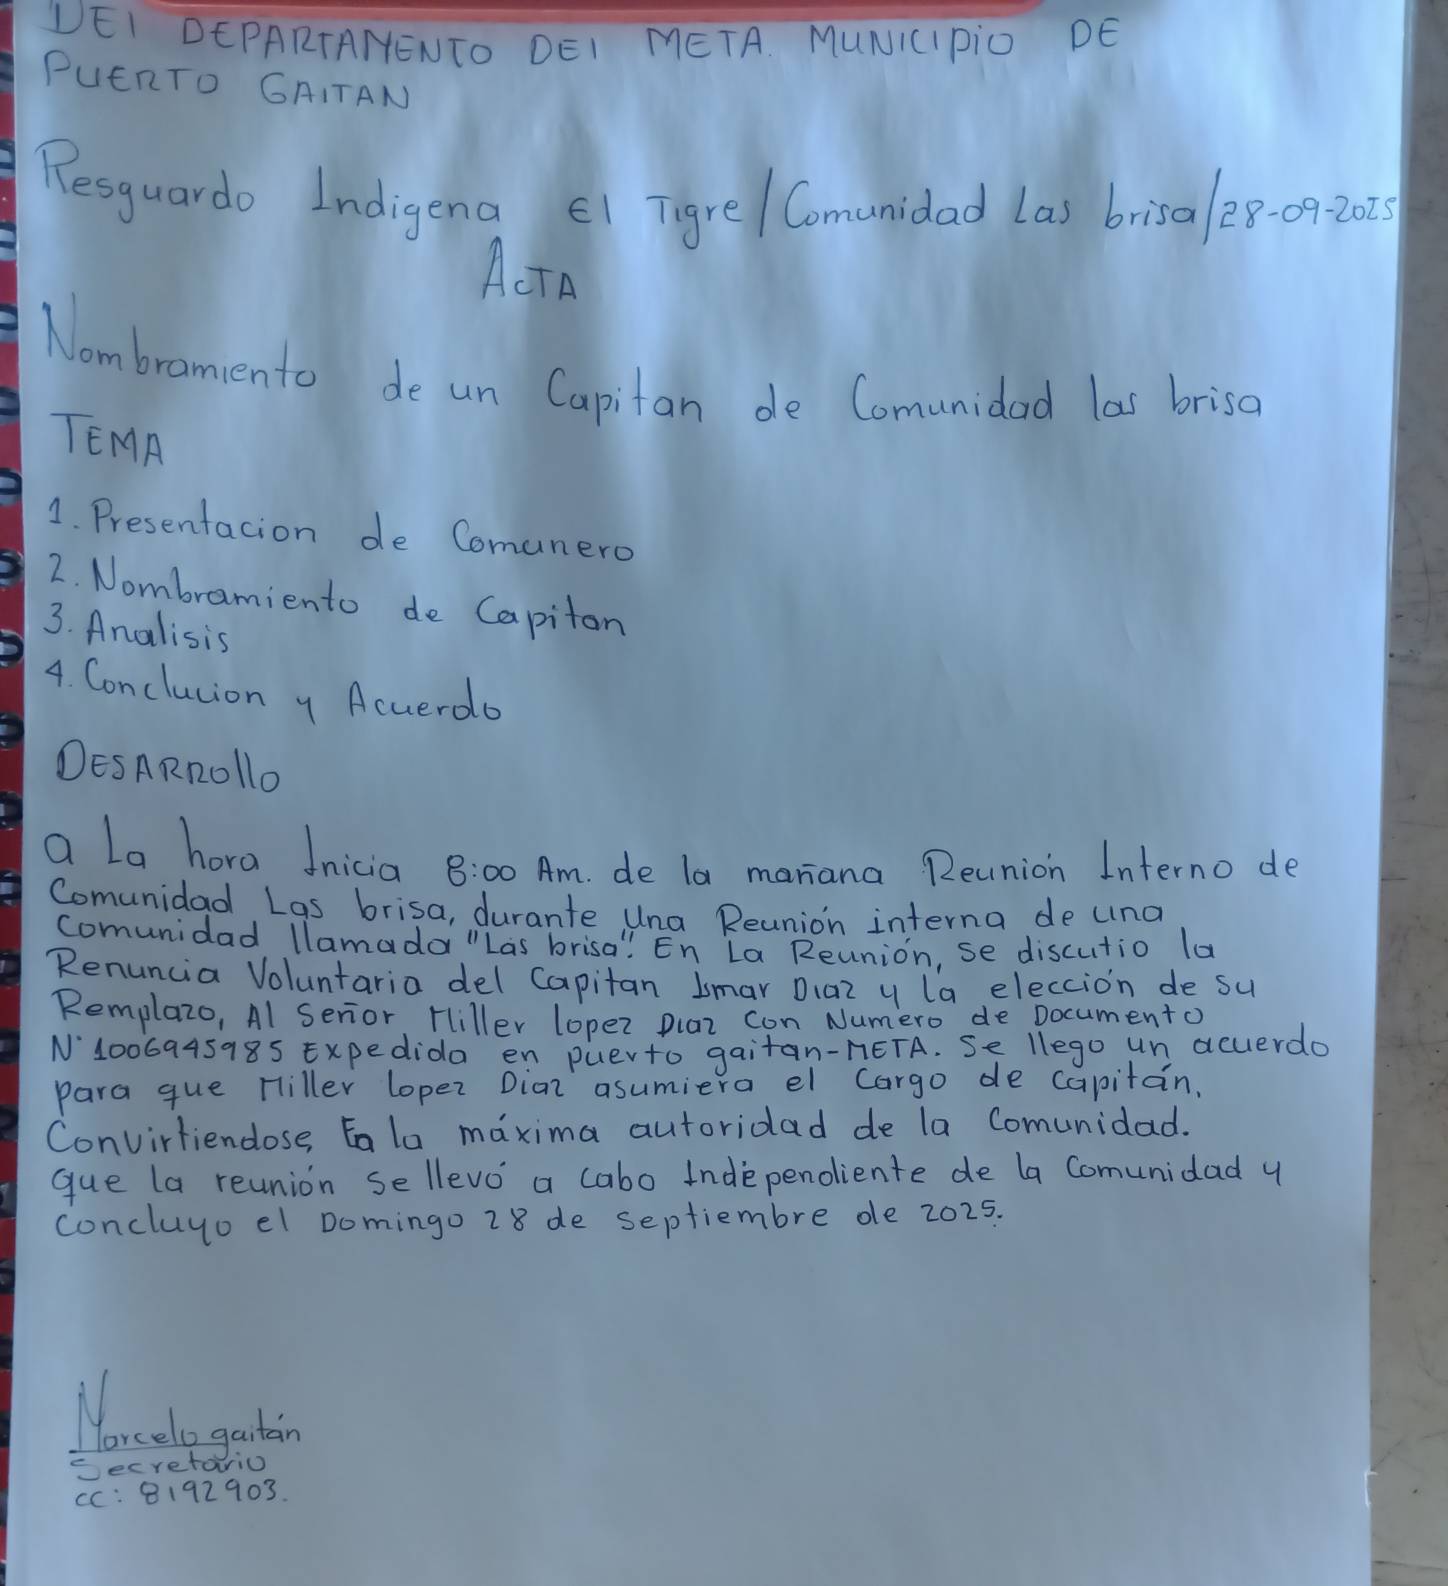 DEl DEPARTAMENTO DEl META. MUNICIPIO DE
PUERTO GAITAN
Resguardo Indigena El Tigre/Comunidad Las brisa/28-09-2025
ACTA
Nombramiento de un Capitan de Comunidad las brisa
TEMA
1. Presentacion de Comunero
2. Nombramiento de Capitan
3. Analisis
4. Conclucion y Acuerdo
DESARRollo
a La hora Inicia 8:00 Am. de la mañana Reunión Interno de
Comunidad Las brisa, durante Una Reunión interna de una
comunidad llamada "Las brisa". En La Reunión, se discutio la
Renuncia Voluntaria del Capitan Ismar Diaz y la elección de su
Remplazo, Al Señor Miller lopez Diaz con Numero de Documento
N° 1006945985 Expedida en puerto gaitan-META. Se llego un acuerdo
para que Miller lopez Diaz asumiera el Cargo de capitán,
Convirtiendose, En la máxima autoridad de la Comunidad.
que la reunión se llevó a cabo Independiente de la Comunidad y
concluyo el Domingo 28 de septiembre de 2025.
Marcelo gaitán
Secretario
cc: 8192903.